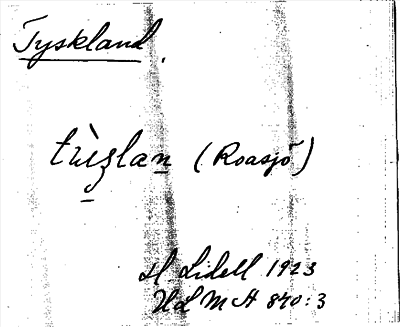 Tyskland.
tri̇̀zlan (Roasjö)
H. Lidell 1923
ULMA 840:3